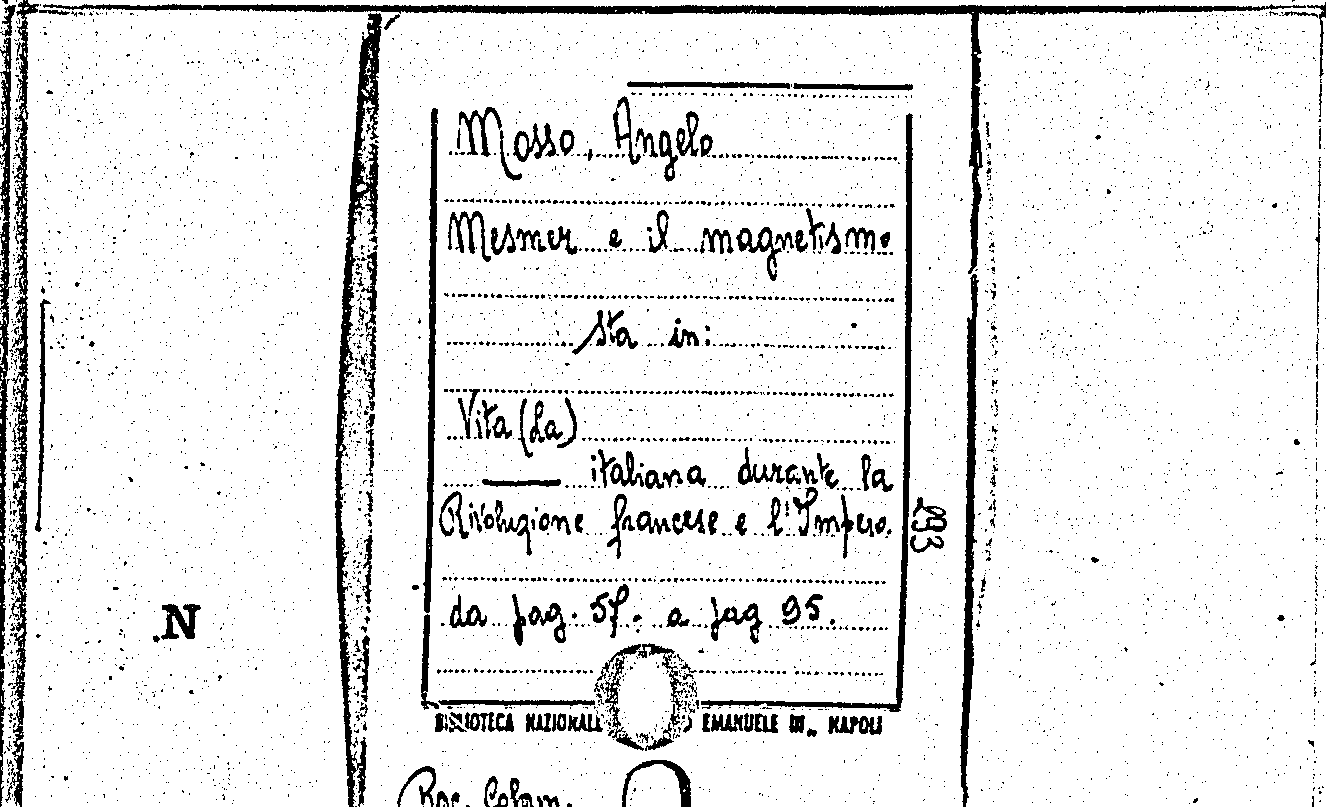 Mosso, Angelo
Mesmer e il magnetismo
sta in:
Vita (La)
italiana durante la
Rivoluzione francese e l'Impero.
da pag. 57. a pag 95.
293
N
BIBLIOTECA NAZIONALE EMANUELE III„ NAPOLI
Rac.